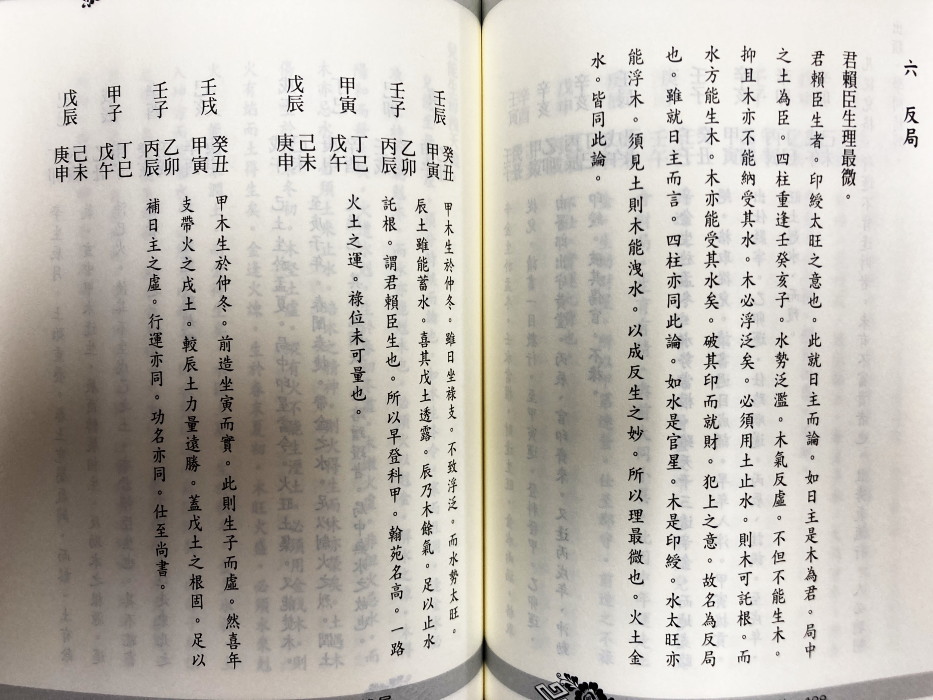 六 反局
君賴臣生理最微。
君賴臣生者。印綬太旺之意也。此就日主而論。如日主是木為君。局中
之土為臣。四柱重逢壬癸亥子。水勢泛濫。木氣反虛。不但不能生木。
抑且木亦不能納受其水。木必浮泛矣。必須用土止水。則木可託根。而
水方能生木。木亦能受其水矣。破其印而就財。犯上之意。故名為反局
也。雖就日主而言。四柱亦同此論。如水是官星。木是印綬。水太旺亦
能浮木。須見土則木能洩水。以成反生之妙。所以理最微也。火土金
水。皆同此論。
壬辰 癸丑 甲木生於仲冬。雖日坐祿支。不致浮泛。而水勢太旺。
甲寅 辰土雖能蓄水。喜其戊土透露。辰乃木餘氣。足以止水
壬子 乙卯
丙辰 託根。謂君賴臣生也。所以早登科甲。翰苑名高。一路
甲寅 丁巳 火土之運。祿位未可量也。
戊午
戊辰 己未
庚申
壬戌 癸丑 甲木生於仲冬。前造坐寅而實。此則坐子而虛。然喜年
甲寅 支帶火之戌土。較辰土力量遠勝。蓋戊土之根固。足以
壬子 乙卯
丙辰 補日主之虛。行運亦同。功名亦同。仕至尚書。
甲子 丁巳
戊午
戊辰 己未
庚申